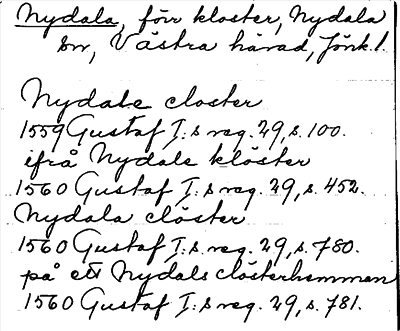 Nydala, förr kloster, Nydala
sn, Västra härad, Jönk. l.
Nydale closter
1559 Gustaf I:s reg. 29, s. 100.
ifrå Nydale klöster
1560 Gustaf I:s reg. 29, s. 452.
Nydala clöster
1560 Gustaf I:s reg. 29, s. 780.
på ett Nydals clösterhemman
1560 Gustaf I:s reg. 29, s. 781.